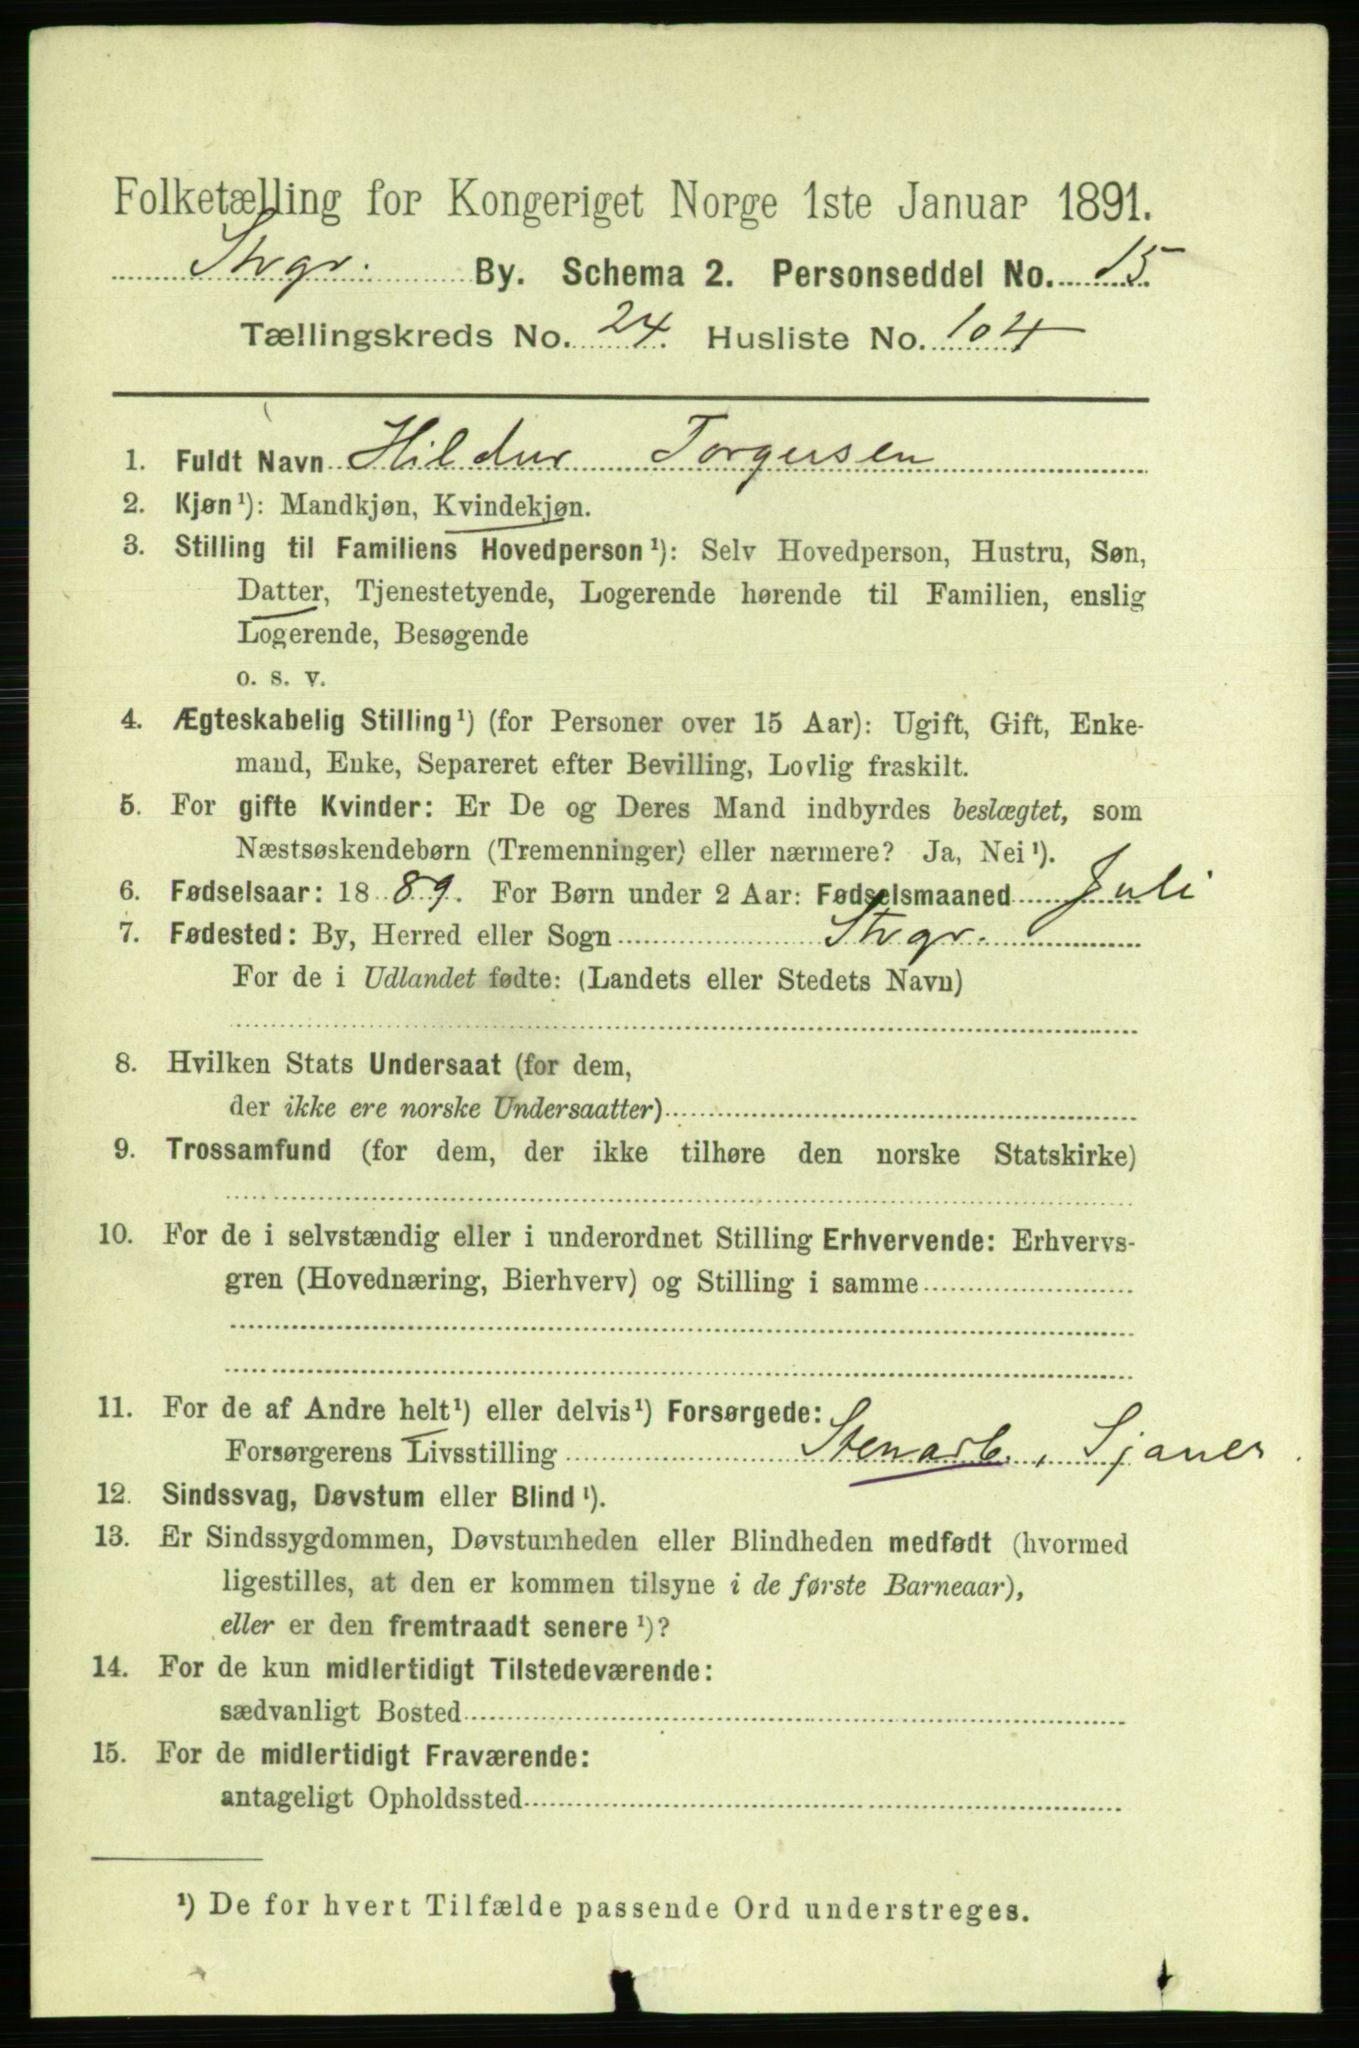 Folketælling for Kongeriget Norge 1ste Januar 1891.
Stvgr. By. Schema 2. Personseddel No. 15.
Tællingskreds No. 24. Husliste No. 104
1. Fuldt Navn Hildur Torgersen
2. Kjøn¹): Mandkjøn, Kvindekjøn.
3. Stilling til Familiens Hovedperson¹): Selv Hovedperson, Hustru, Søn,
Datter, Tjenestetyende, Logerende hørende til Familien, enslig
Logerende, Besøgende
o. s. v.
4. Ægteskabelig Stilling¹) (for Personer over 15 Aar): Ugift, Gift, Enke-
mand, Enke, Separeret efter Bevilling, Lovlig fraskilt.
5. For gifte Kvinder: Er De og Deres Mand indbyrdes beslægtet, som
Næstsøskendebørn (Tremenninger) eller nærmere? Ja, Nei¹).
6. Fødselsaar: 1889. For Børn under 2 Aar: Fødselsmaaned Juli
7. Fødested: By, Herred eller Sogn Stvgr.
For de i Udlandet fødte: (Landets eller Stedets Navn)
8. Hvilken Stats Undersaat (for dem,
der ikke ere norske Undersaatter)
9. Trossamfund (for dem, der ikke tilhøre den norske Statskirke)
10. For de i selvstændig eller i underordnet Stilling Erhvervende: Erhvervs-
gren (Hovednæring, Bierhverv) og Stilling i samme
11. For de af Andre helt¹) eller delvis¹) Forsørgede:
Forsørgerens Livsstilling Stenarb., Sjauer
12. Sindssvag, Døvstum eller Blind¹).
13. Er Sindssygdommen, Døvstumheden eller Blindheden medfødt (hvormed
ligestilles, at den er kommen tilsyne i de første Barneaar),
eller er den fremtraadt senere¹)?
14. For de kun midlertidigt Tilstedeværende:
sædvanligt Bosted
15. For de midlertidigt Fraværende:
antageligt Opholdssted
¹) De for hvert Tilfælde passende Ord understreges.